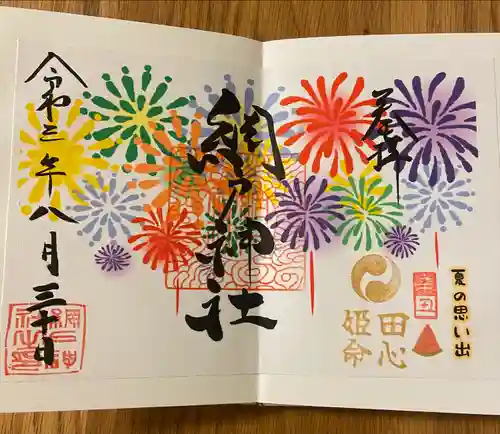 奉拝
夏の思い出
辛丑
田心
姫命
網戸神社
令和三年八月三十日